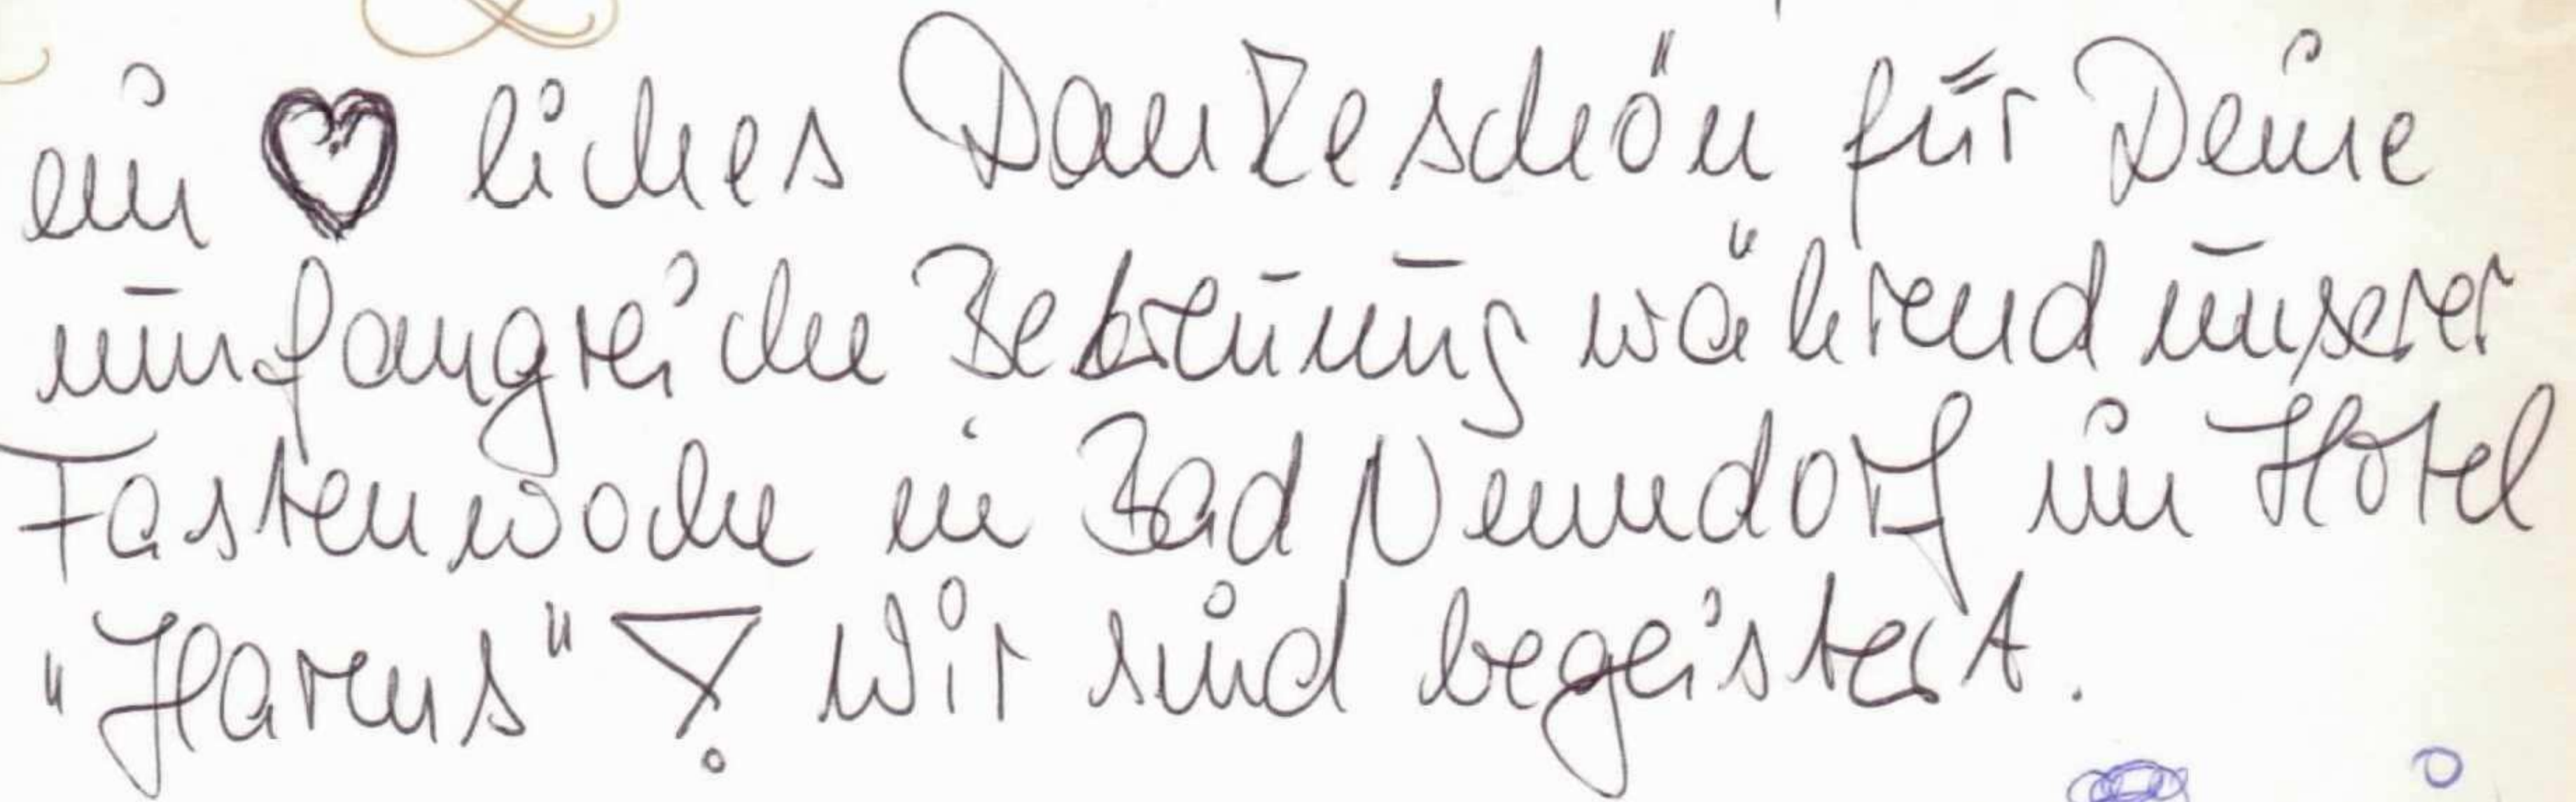 ein ♥ liches Dankeschön für Deine
umfangreiche Betreuung während unserer
Fastenwoche in Bad Nenndorf im Hotel
"Harms"! Wir sind begeistert.